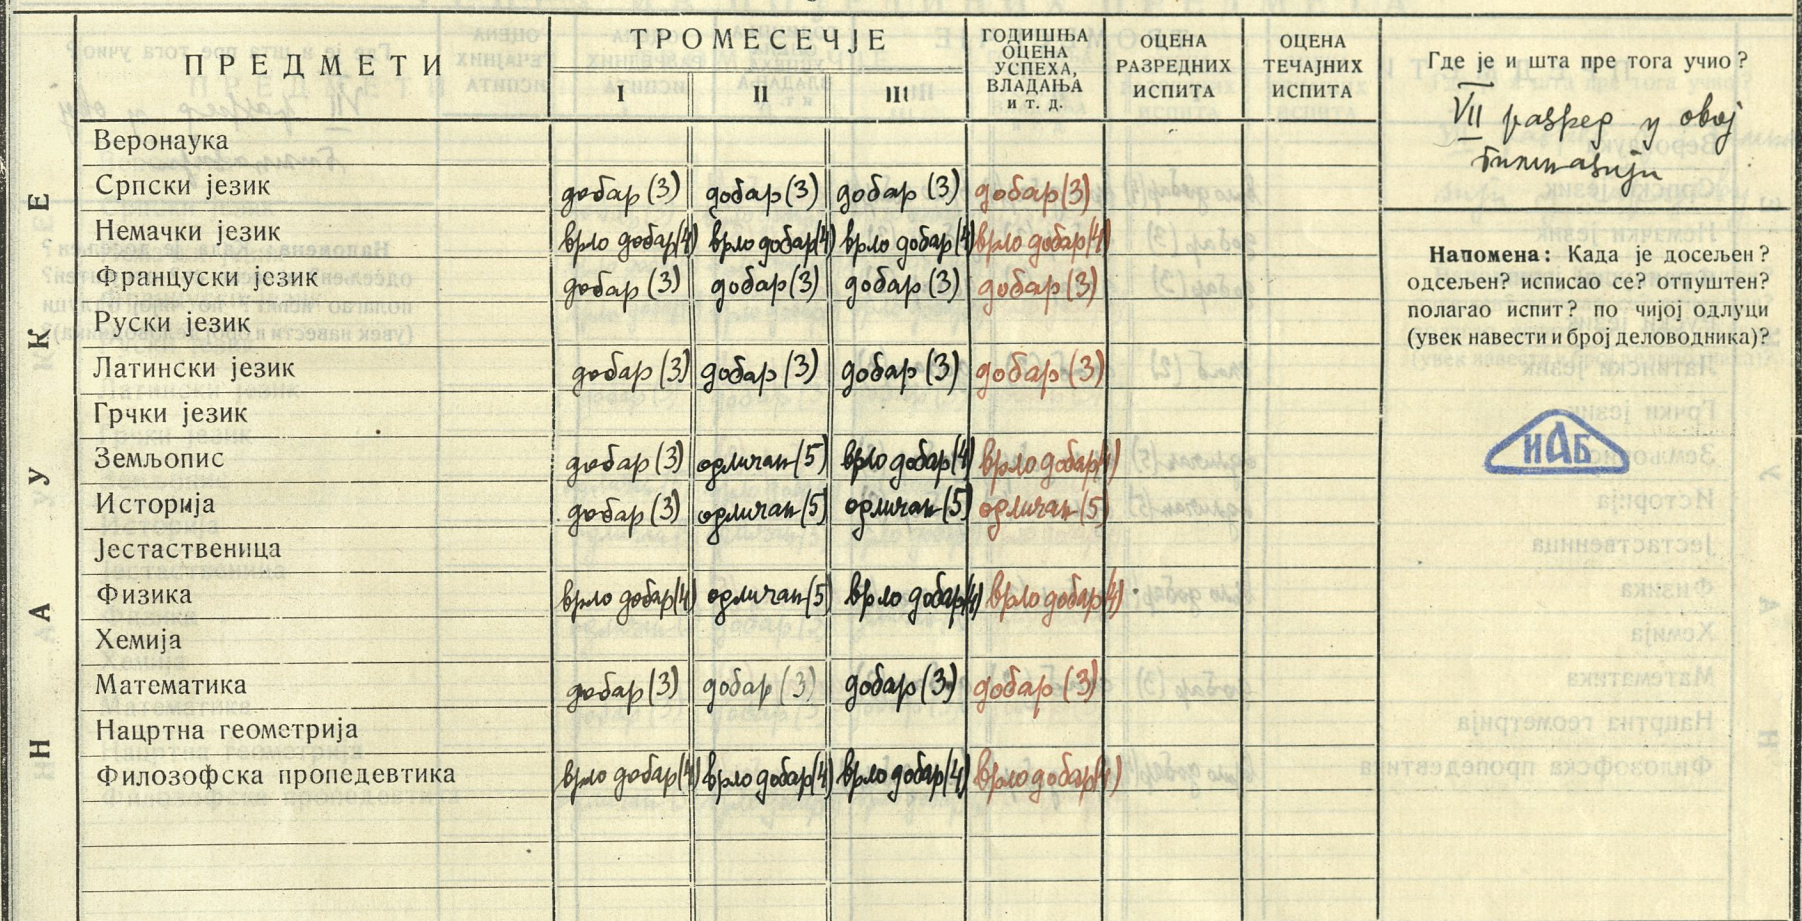 ПРЕДМЕТИ
ТРОМЕСЕЧЈЕ
I II III
ГОДИШЊА
ОЦЕНА
УСПЕХА,
ВЛАДАЊА
И Т. Д.
ОЦЕНА
РАЗРЕДНИХ
ИСПИТА
ОЦЕНА
ТЕЧАЈНИХ
ИСПИТА
Где је и шта пре тога учио?
VII разред у овој
гимназији
НАУКЕ
Веронаука
Српски језик добар (3) добар (3) добар (3) добар (3)
Немачки језик врло добар (4) врло добар (4) врло добар (4) врло добар (4)
Француски језик добар (3) добар (3) добар (3) добар (3)
Руски језик
Латински језик добар (3) добар (3) добар (3) добар (3)
Грчки језик
Земљопис добар (3) одличан (5) врло добар (4) врло добар (4)
Историја добар (3) одличан (5) одличан (5) одличан (5)
Јестаственица
Физика врло добар (4) одличан (5) врло добар (4) врло добар (4)
Хемија
Математика добар (3) добар (3) добар (3) добар (3)
Нацртна геометрија
Филозофска пропедевтика врло добар (4) врло добар (4) врло добар (4) врло добар (4)
Напомена: Када је досељен?
одсељен? исписао се? отпуштен?
полагао испит? по чијој одлуци
(увек навести и број деловодника)?
ИАБ